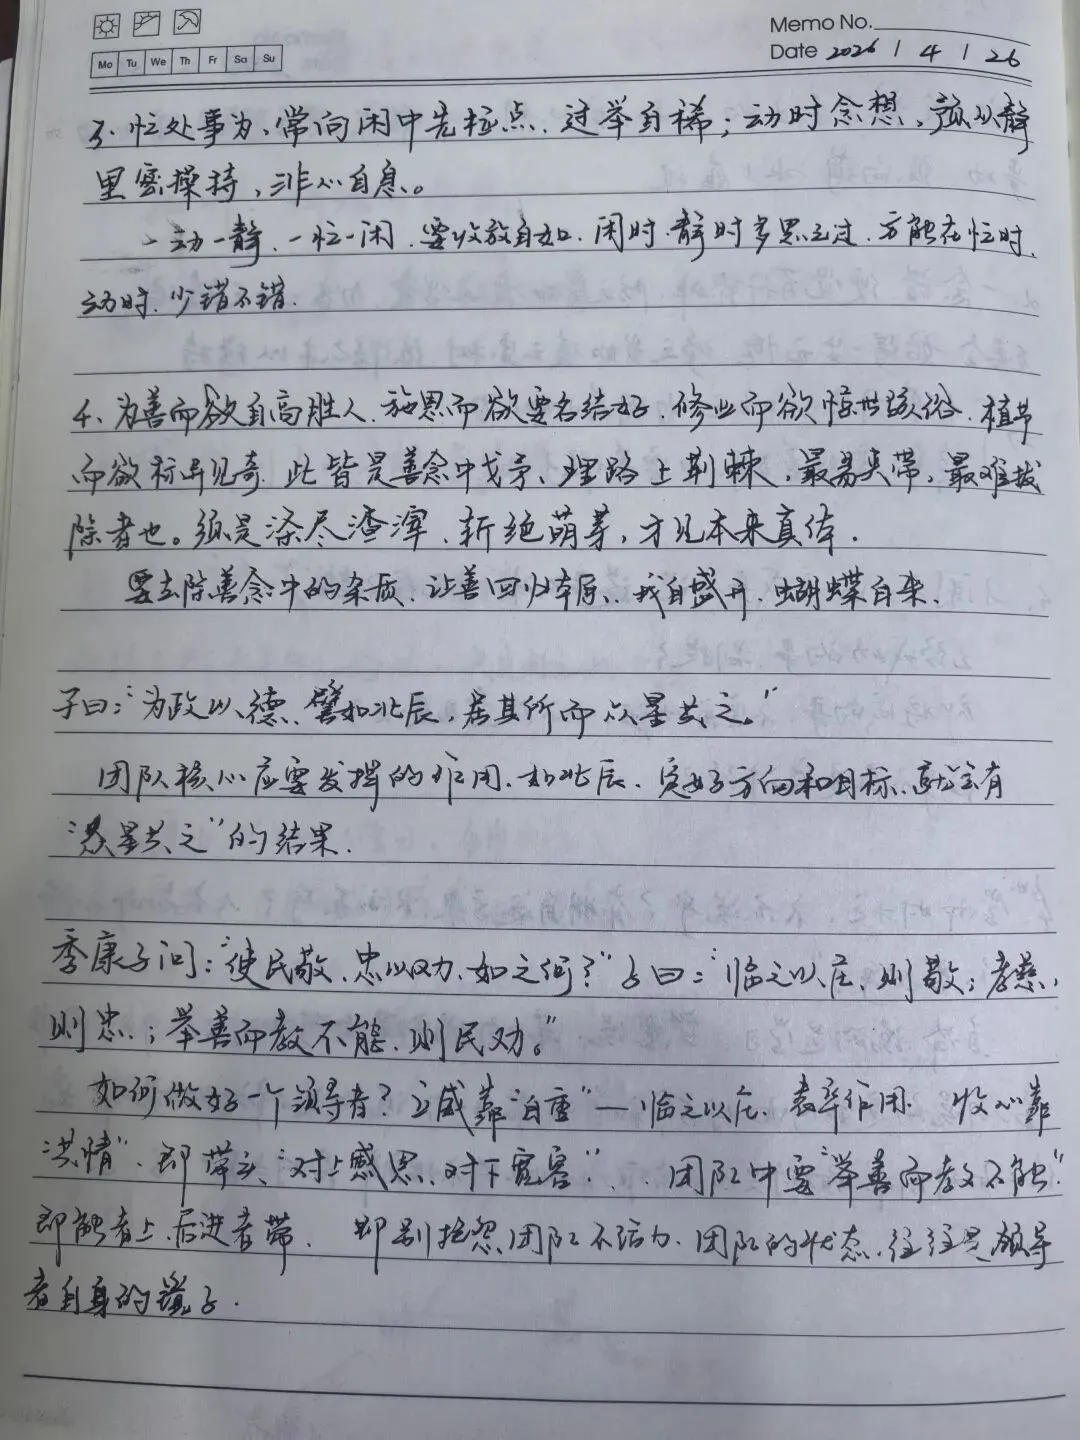 Memo No.
Mo Tu We Th Fr Sa Su
Date 2026 / 4 / 26
3、忙处事为、常向闲中先检点、过举自稀；动时念想，预从静
里密操持，非心自息。
一动一静、一忙一闲、要收放自如、闲时静时多思己过、方能在忙时、
动时、少错不错.
4、为善而欲自高胜人、施恩而欲要名结好、修业而欲惊世骇俗、植节
而欲标异见奇、此皆是善念中戈矛、理路上荆棘，最易夹带，最难拔
除者也。须是涤尽渣滓、斩绝萌芽，才见本来真体.
要去除善念中的杂质、让善回归本原、我自盛开、蝴蝶自来.
子曰：“为政以德、譬如北辰，居其所而众星共之。”
团队核心应要发挥的作用、如北辰、定好方向和目标、就会有
“众星共之”的结果.
季康子问：“使民敬、忠以劝、如之何？”子曰：“临之以庄、则敬；孝慈，
则忠；举善而教不能、则民劝。”
如何做好一个领导者？立威靠“自重”—临之以庄、表率作用. 收心靠
“共情”、即带头“对上感恩、对下宽容”、团队中要“举善而教不能”
即能者上、后进者带. 即别抱怨团队不给力、团队的状态、往往是领导
者自身的镜子.